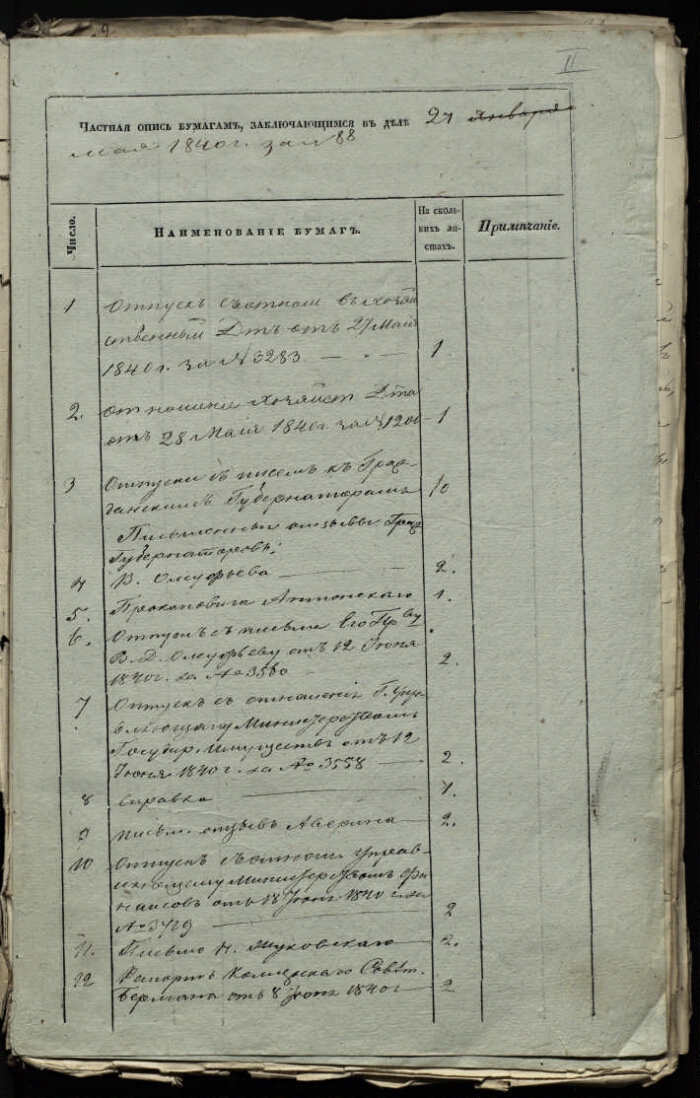 II
Частная опись бумагамъ, заключающимся въ дѣлѣ 27 января
мая 1840 г. за № 88
Число.
Наименованіе бумагъ.
На сколь-
кихъ ли-
стахъ.
Примѣчаніе.
1 Отпускъ съ отнош въ Хозяй
ственный Дтъ отъ 27 Мая
1840 г. за № 3283 — 1.
2. Отношеніе Хозяйст Дта
отъ 28 Мая 1840 г. за № — 1
3 Отпуски съ писемъ къ Граж-
данскимъ Губернаторамъ 10
Письменные отзывы Граж
Губернаторовъ:
4 В. Олсуфьева — 2.
5. Прокоповича Антонскаго 1.
6. Отпускъ съ письма Его Пр ву
В. Д. Олсуфьеву отъ 12 Іюня
1840 г. за № 3560 2.
7 Отпускъ съ отношенія Г. Упра
вляющему Министерствомъ
Государ. Имуществъ отъ 12
Іюня 1840 г. за № 3558 — 2.
8 Справка — 7.
9 Письм. отзывъ Аверина — 2.
10 Отпускъ съ отнош Управ-
ляющему Министерствомъ Фи
нансовъ отъ 18 Іюня 1840 г. за
№ 3729 — 2
11. Письмо Н. Жуковскаго — 2.
12 Рапортъ Совѣт.
Бермана отъ 8 Іюня 1840 г 2